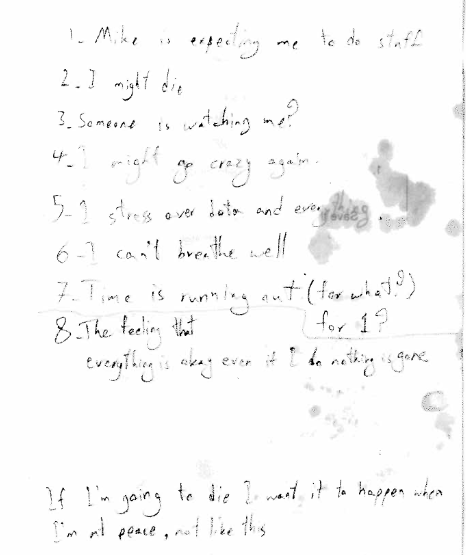 1- Mike is expecting me to do stuff
2- I might die
3- Someone is watching me?
4- I might go crazy again.
5- I stress over data and everything
6- I can't breathe well
7- Time is running out (for what?)
for 1?
8- The feeling that
everything is okay even if I do nothing is gone
If I'm going to die I want it to happen when
I'm at peace, not like this